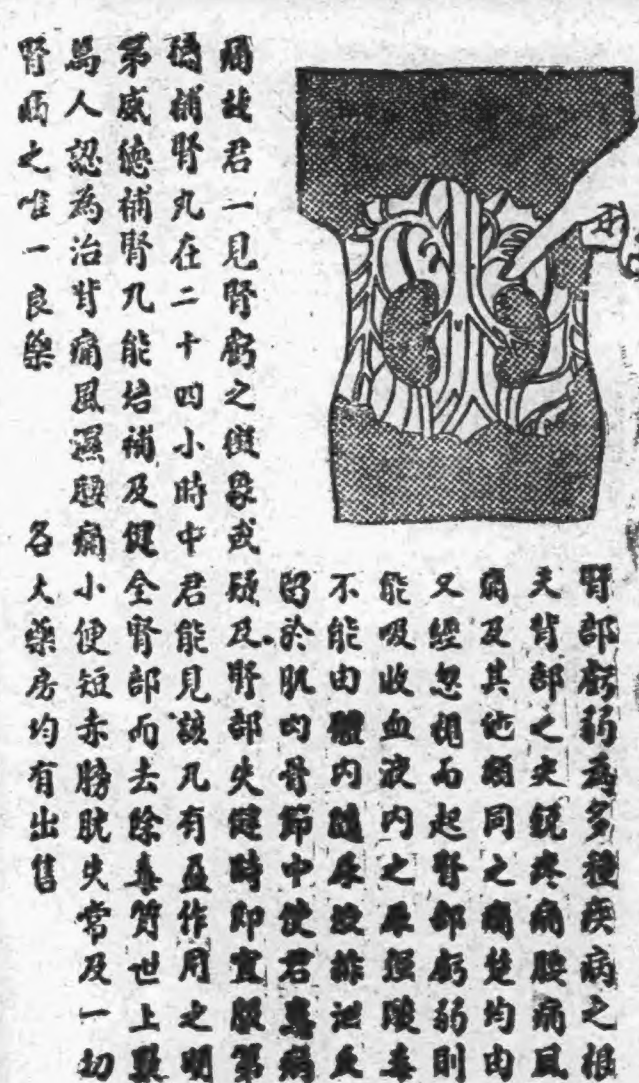 腎部虧弱為多種疾病之根
夫背部之尖銳疼痛腰痛風
痛及其他類同之痛楚均由
又經忽視而起腎部虧弱則
能吸收血液內之尿酸毒
不能由體內隨尿液排泄反
留於肌肉骨節中使君患病
痛故君一見腎虧之徵象或疑及腎部失健時即宜服第
補腎丸在二十四小時中君能見該丸有益作用之明
第威德補腎丸能培補及健全腎部而去除毒質世上數
萬人認為治背痛風濕腰痛小便短赤膀胱失常及一切
腎病之唯一良藥 各大藥房均有出售